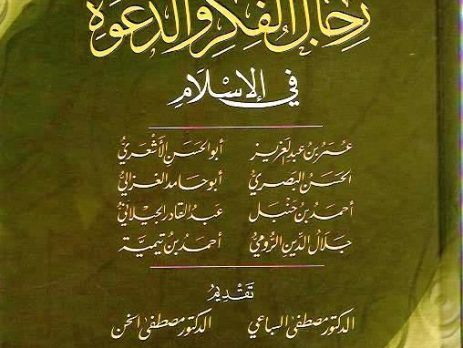 رجال الفكر والدعوة
في الإسلام
عمر بن عبد العزيز أبو الحسن الأشعري
الحسن البصري أبو حامد الغزالي
أحمد بن حنبل عبد القادر الجيلاني
جلال الدين الرومي أحمد بن تيمية
تقديم
الدكتور مصطفى السباعي الدكتور مصطفى الخن